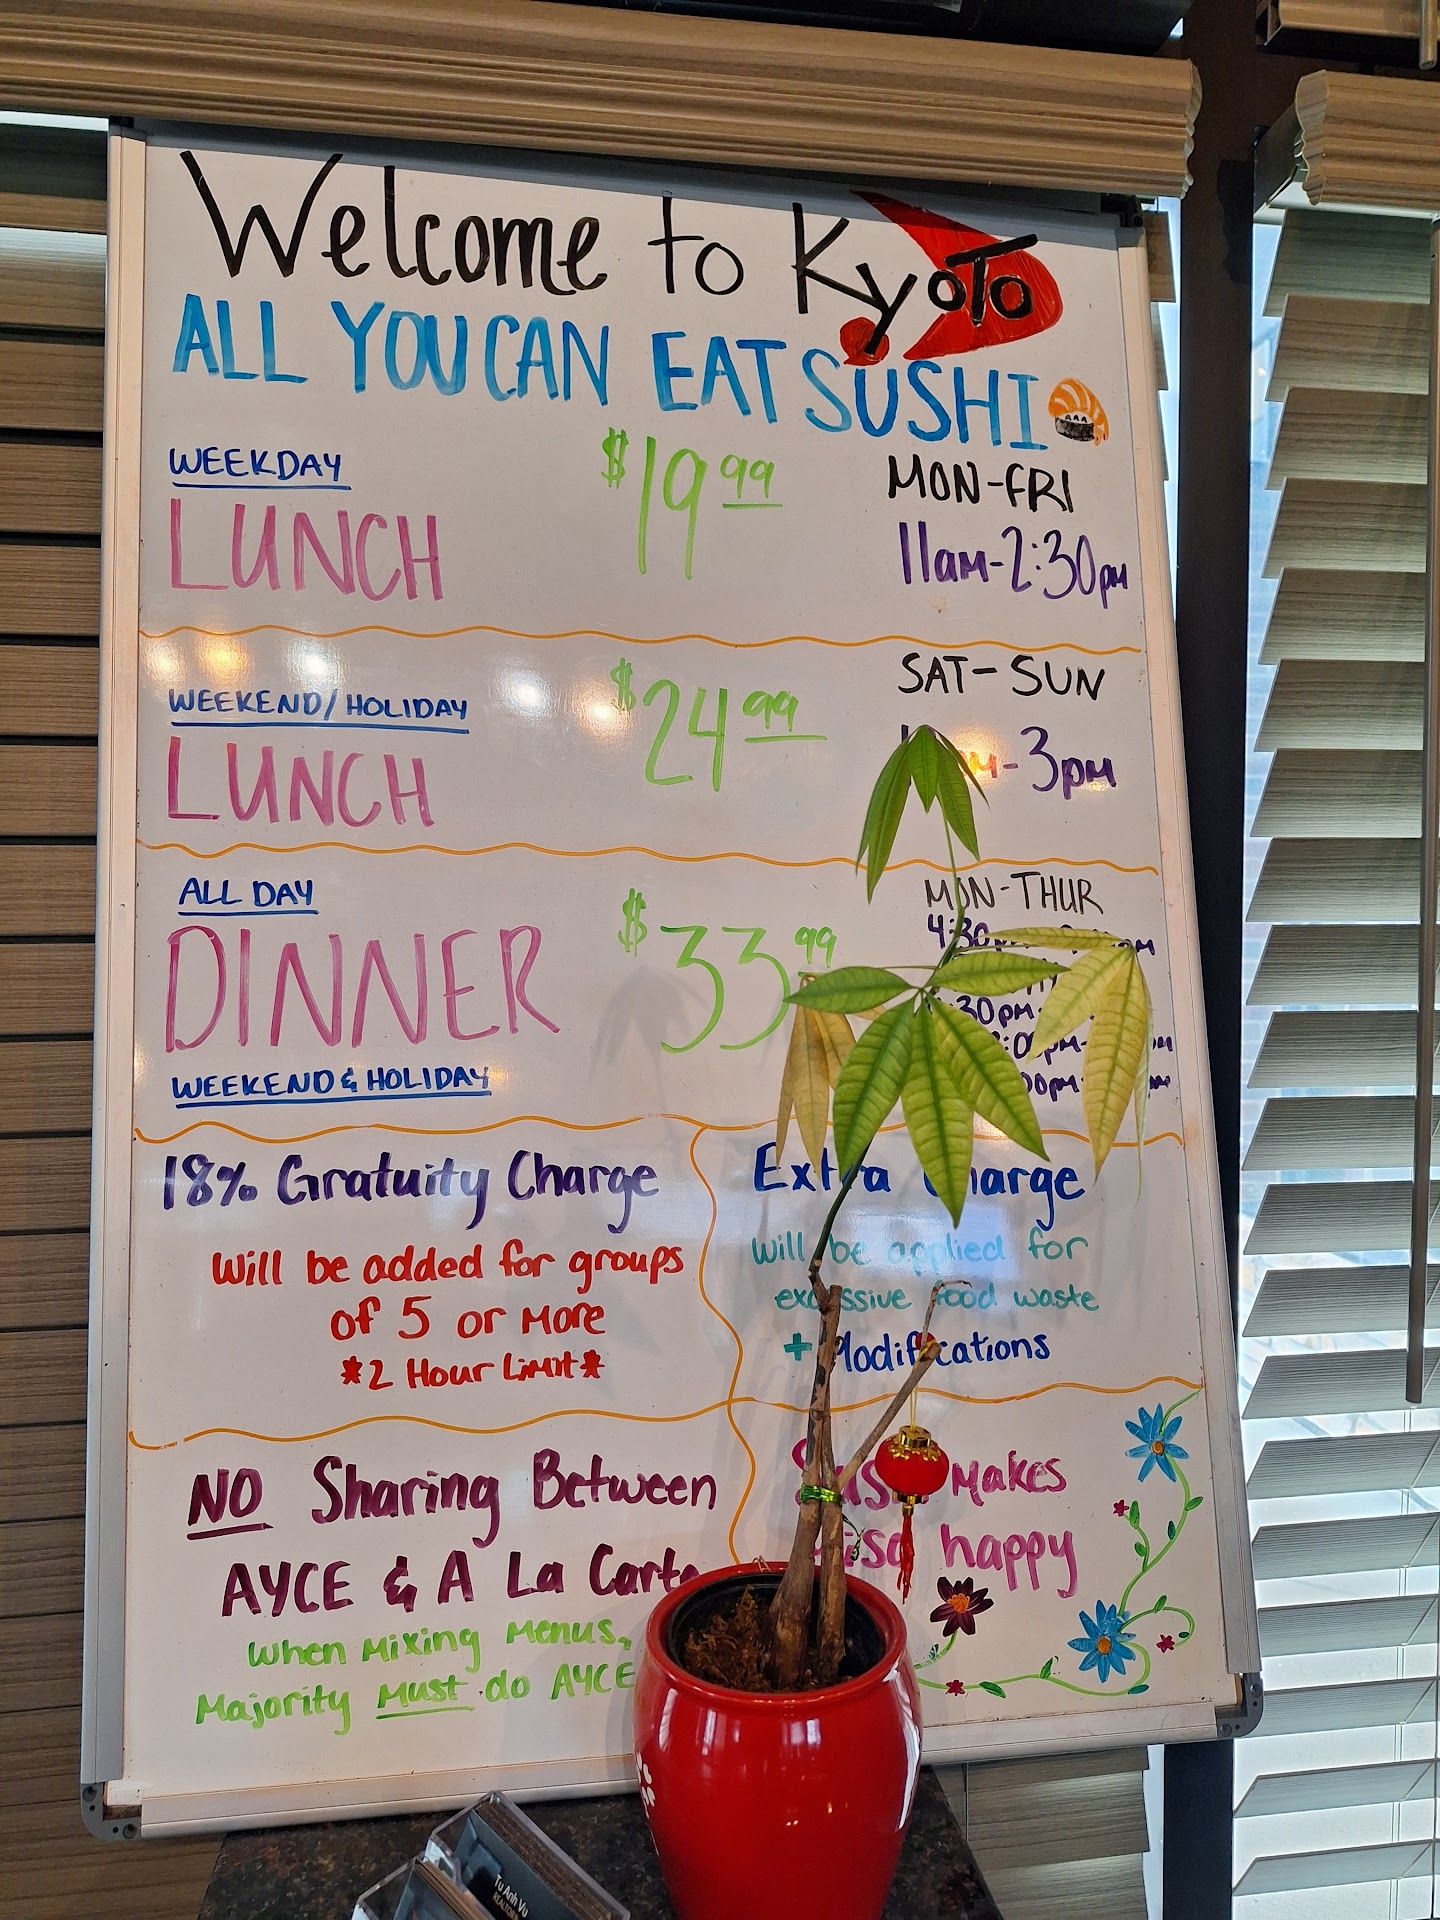 Welcome to KyoTo
ALL YOU CAN EAT SUSHI
WEEKDAY
LUNCH
$19.99
MON-FRI
11am-2:30pm
WEEKEND/HOLIDAY
LUNCH
$24.99
SAT-SUN
-3pm
ALL DAY
DINNER
WEEKEND & HOLIDAY
$33.99
MON-THUR
4:30
30pm-
00pm-
18% Gratuity Charge
Will be added for groups
of 5 or more
*2 Hour Limit*
Extra Charge
will be applied for
excessive food waste
+ Modifications
NO Sharing Between
AYCE & A La Carte
When Mixing Menus,
Majority Must do AYCE
Sushi Makes
happy
Tu Anh Vu
REALTOR